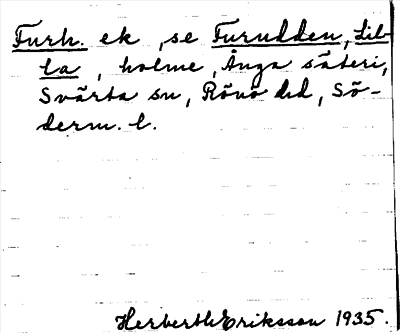 Furh. ek, se Furudden, Lil-
la, holme, Ånga säteri,
Svärta sn, Rönö hd, Sö-
derm. l.
Herberth Eriksson 1935.